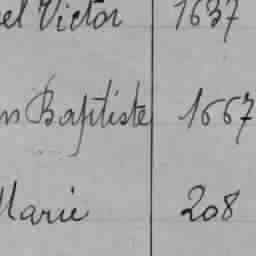 el Victor 1637
n Baptiste 1667
Marie 208